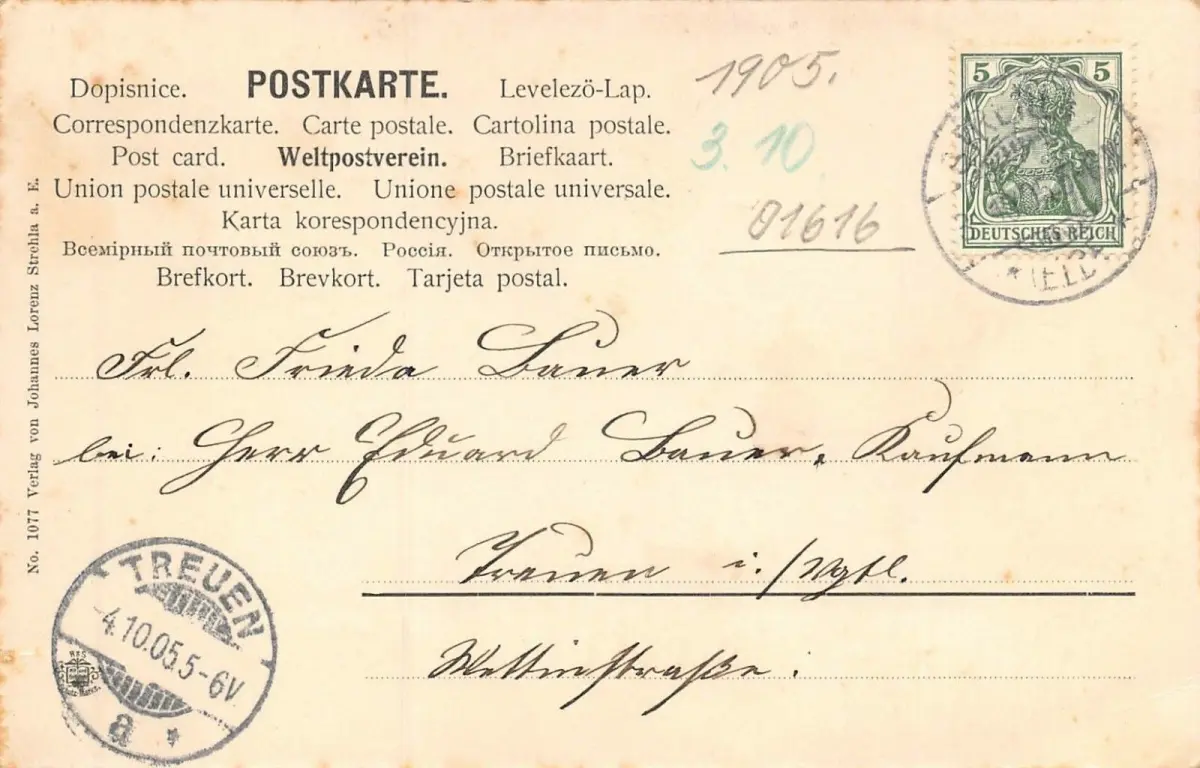 Dopisnice. POSTKARTE. Levelezö-Lap.
Correspondenzkarte. Carte postale. Cartolina postale.
Post card. Weltpostverein. Briefkaart.
Union postale universelle. Unione postale universale.
Karta korespondencyjna.
Всемірный почтовый союзъ. Россія. Открытое письмо.
Brefkort. Brevkort. Tarjeta postal.
1905.
3. 10
01616
5 5
DEUTSCHES REICH
No. 1077 Verlag von Johannes Lorenz Strehla a. E.
Frl. Frieda Bauer
bei: Herr Eduard Bauer, Kaufmann
Treuen i./Vgtl.
Wettinstraße.
TREUEN
4.10.05.5-6V
a *